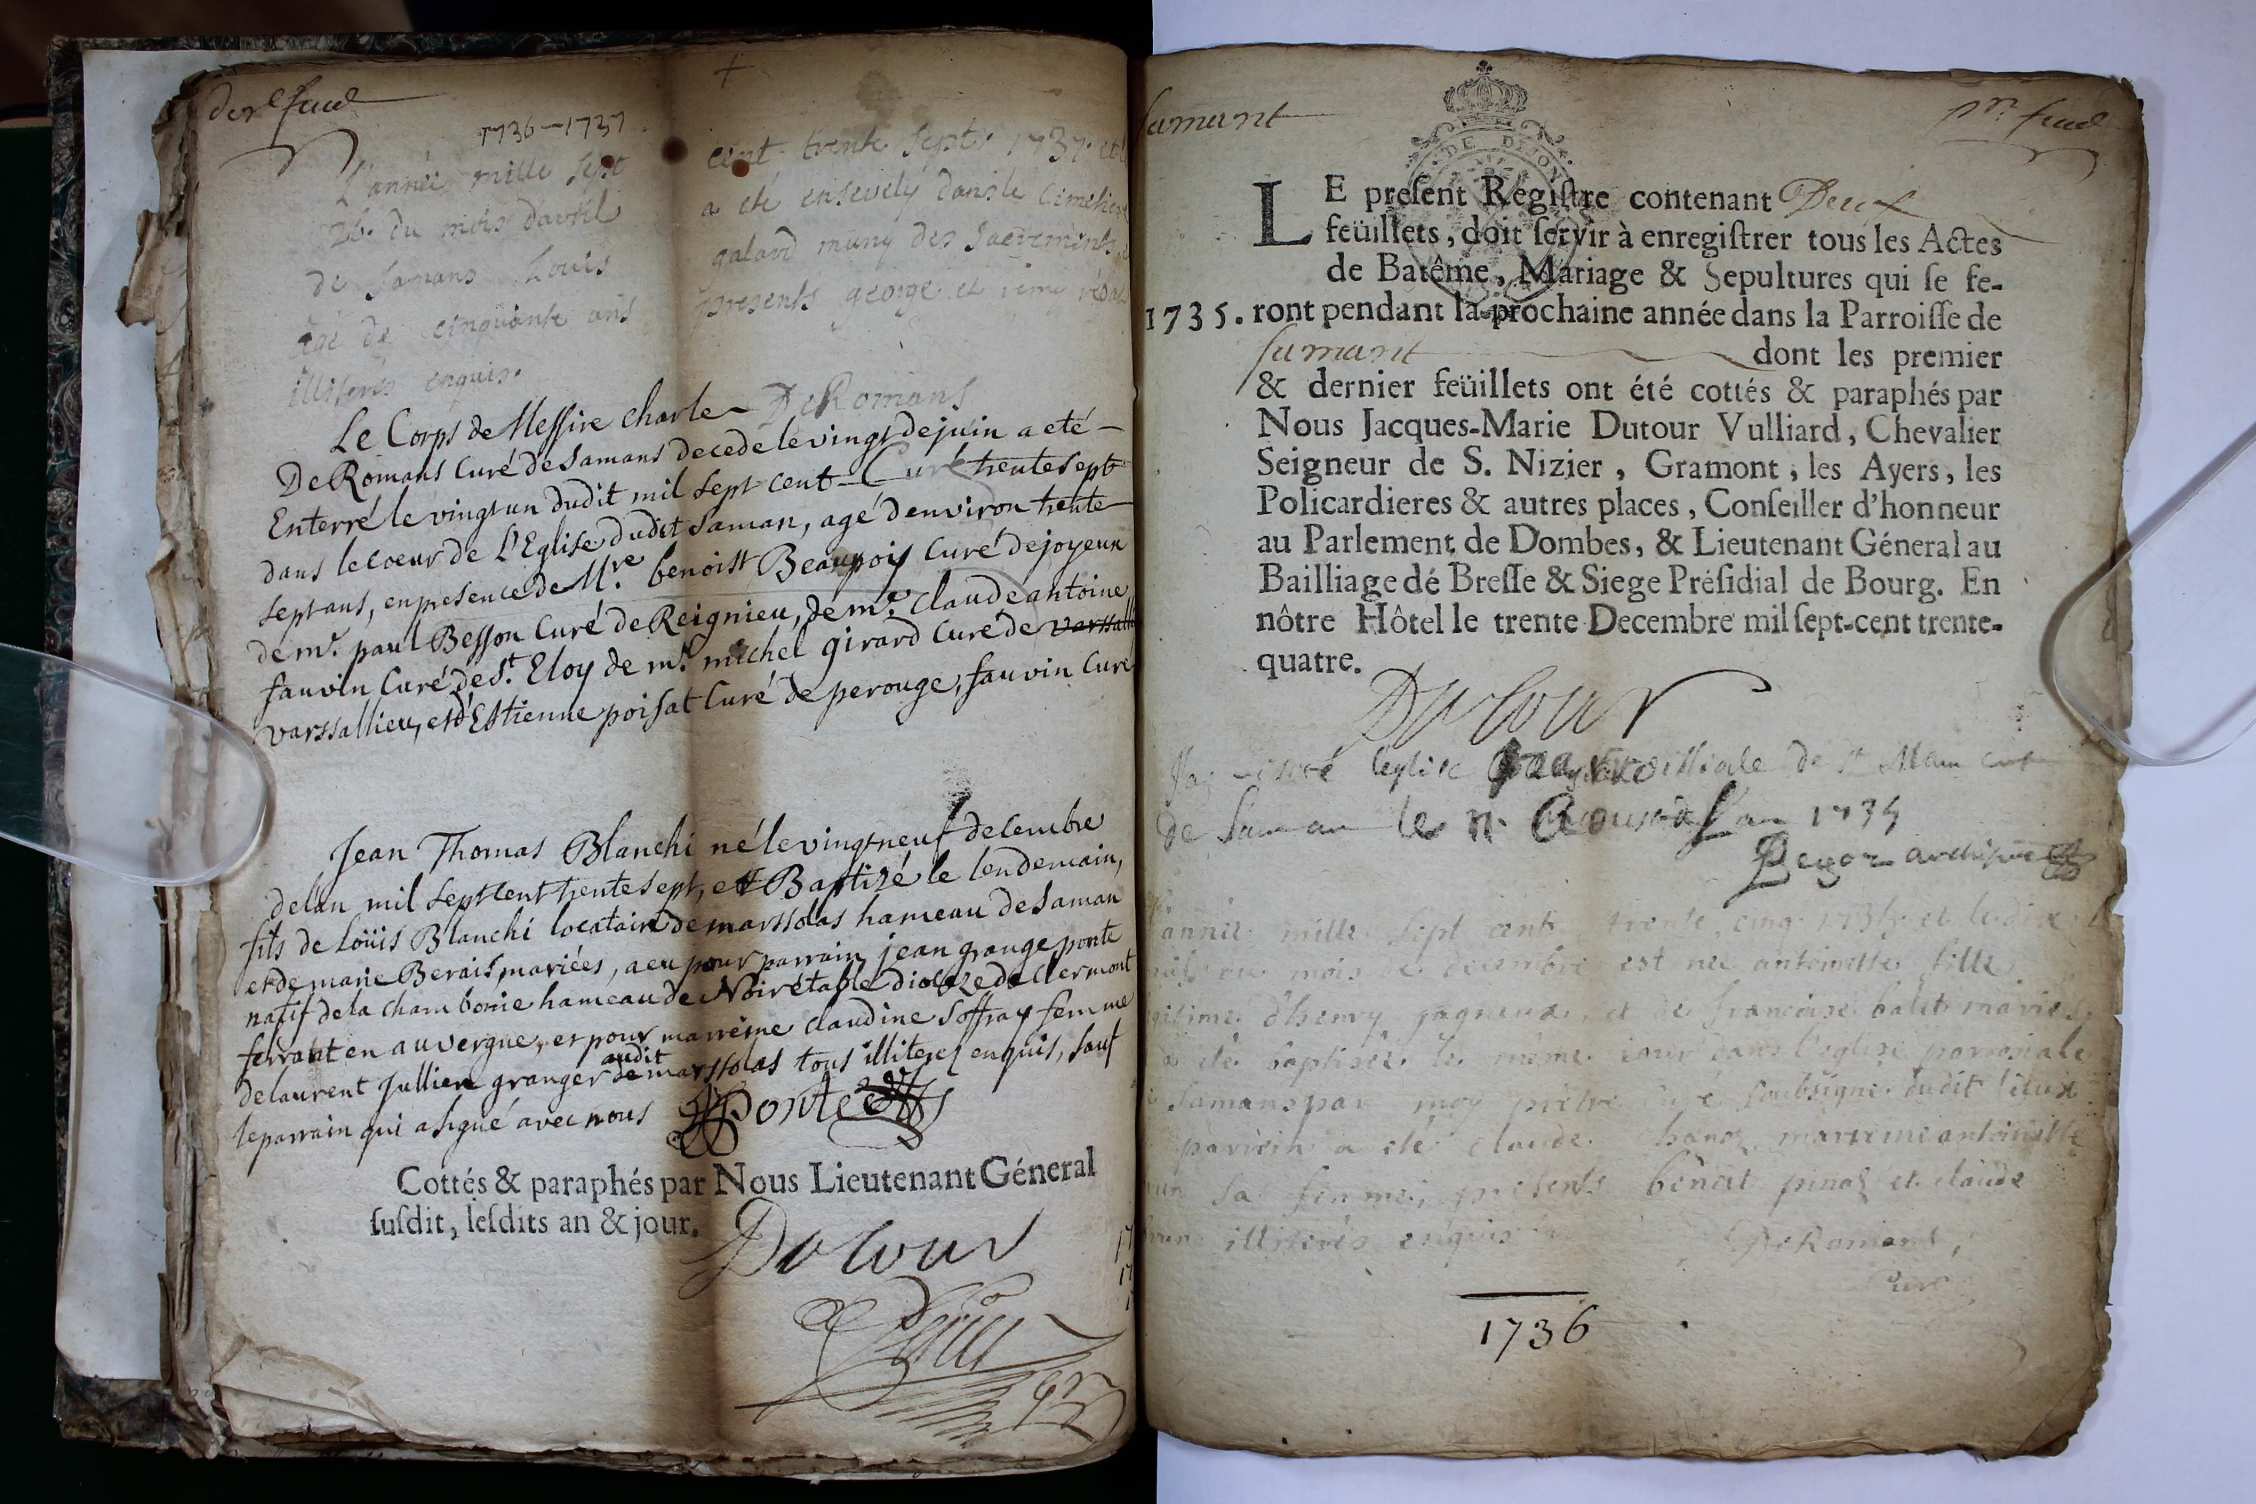 der.e fueil
1736-1737
L'année mille sept cent trente sept. 1737. et le
26. du mois d'avril a eté ensevely dans le cimetiere
de Samans Louis galand muny des sacrements,
agé de cinquante ans presents george et
illiterés enquis.
DeRomans
Curé
Le Corps de Messire charle
DeRomans Curé de Samans decedé le vingt de juin a eté
Enterré le vingt un dudit mil sept cent trente sept
dans le coeur de L'Eglise dudit Saman, agé d'environ trente
sept ans, en presence de Mre. benoist Beaupois Curé de joyeux
de mr. paul Besson Curé de Reignieu, de mr. claude antoine
fauvin Curé de St. Eloy de mr. michel girard curé de
varssallieu, et d'Estienne poisat Curé de perouge, fauvin Curé
Jean Thomas Blanchi né le vingt neuf decembre
de l'an mil sept cent trente sept, et Baptizé le lendemain,
fils de Loüis Blanchi locataire de marssolas hameau de Saman
et de marie Berais, mariées, a eu pour parrain jean grange ponte
natif de la chambonie hameau de Noirétable dioceze de clermont
ferrant en auvergne, et pour marreine claudine Soffray femme
de laurent Jullien granger audit marssolas tous illiterez enquis, sauf
le parrain qui a signé avec nous Ponte
Cottés & paraphés par Nous Lieutenant Géneral
susdit, lesdits an & jour.
Dutour
samant
pr. fueil
DE DIJON
LE present Registre contenant Deux
feüillets, doit servir à enregistrer tous les Actes
de Batême, Mariage & Sepultures qui se fe-
1735. ront pendant la prochaine année dans la Parroisse de
samant dont les premier
& dernier feüillets ont été cottés & paraphés par
Nous Jacques-Marie Dutour Vulliard, Chevalier
Seigneur de S. Nizier, Gramont, les Ayers, les
Policardieres & autres places, Conseiller d'honneur
au Parlement de Dombes, & Lieutenant Géneral au
Bailliage dé Bresse & Siege Présidial de Bourg. En
nôtre Hôtel le trente Decembre mil sept-cent trente-
quatre.
Dutour
l'eglise de
de Saman le l'an 1735
année mille sept cent trente cinq 1735. et le dix
du mois de decembre est née antoinette fille
d'henry gagneux et de francoise balet mariés
a eté baptisée le meme jour dans l'eglise parrosiale
Samans par moy pretre curé soubsigné dudit lieux
parrein a eté claude marreine antoinette
sa femme, presents benoit et claude
illiterés enquis
DeRomans,
Curé
1736